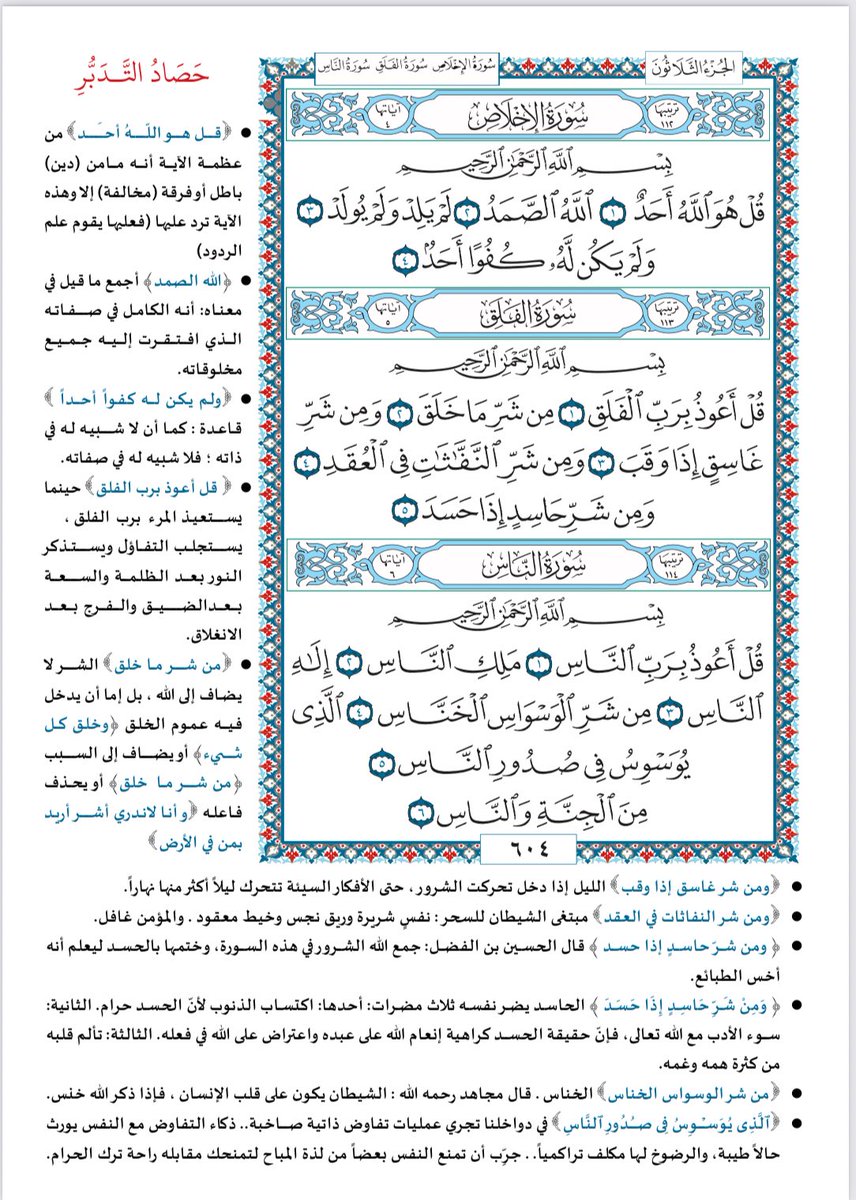 الجزء الثلاثون
سورة الإخلاص سورة الفلق سورة الناس
ترتيبها ١١٢
سُورَةُ الإِخْلَاصِ
آياتها ٤
بِسْمِ ٱللَّهِ ٱلرَّحْمَٰنِ ٱلرَّحِيمِ
قُلْ هُوَ ٱللَّهُ أَحَدٌ ١ ٱللَّهُ ٱلصَّمَدُ ٢ لَمْ يَلِدْ وَلَمْ يُولَدْ ٣
وَلَمْ يَكُن لَّهُۥ كُفُوًا أَحَدٌۢ ٤
ترتيبها ١١٣
سُورَةُ الفَلَقِ
آياتها ٥
بِسْمِ ٱللَّهِ ٱلرَّحْمَٰنِ ٱلرَّحِيمِ
قُلْ أَعُوذُ بِرَبِّ ٱلْفَلَقِ ١ مِن شَرِّ مَا خَلَقَ ٢ وَمِن شَرِّ
غَاسِقٍ إِذَا وَقَبَ ٣ وَمِن شَرِّ ٱلنَّفَّٰثَٰتِ فِى ٱلْعُقَدِ ٤
وَمِن شَرِّ حَاسِدٍ إِذَا حَسَدَ ٥
ترتيبها ١١٤
سُورَةُ النَّاسِ
آياتها ٦
بِسْمِ ٱللَّهِ ٱلرَّحْمَٰنِ ٱلرَّحِيمِ
قُلْ أَعُوذُ بِرَبِّ ٱلنَّاسِ ١ مَلِكِ ٱلنَّاسِ ٢ إِلَٰهِ
ٱلنَّاسِ ٣ مِن شَرِّ ٱلْوَسْوَاسِ ٱلْخَنَّاسِ ٤ ٱلَّذِى
يُوَسْوِسُ فِى صُدُورِ ٱلنَّاسِ ٥
مِنَ ٱلْجِنَّةِ وَٱلنَّاسِ ٦
٦٠٤
حَصَادُ التَّدَبُّرِ
• ﴿قل هو اللّهُ أحَد﴾ من
عظمة الآية أنه مامن (دين)
باطل أوفرقة (مخالفة) إلا وهذه
الآية ترد عليها (فعليها يقوم علم
الردود)
• ﴿الله الصمد﴾ أجمع ما قيل في
معناه: أنه الكامل في صفاته
الذي افتقرت إليه جميع
مخلوقاته.
• ﴿ولم يكن له كفواً أحداً ﴾
قاعدة : كما أن لا شبيه له في
ذاته ؛ فلا شبيه له في صفاته.
• ﴿ قل أعوذ برب الفلق﴾ حينما
يستعيذ المرء برب الفلق ،
يستجلب التفاؤل ويستذكر
النور بعد الظلمة والسعة
بعدالضيق والفرج بعد
الانغلاق.
• ﴿من شر ما خلق﴾ الشر لا
يضاف إلى الله ، بل إما أن يدخل
فيه عموم الخلق ﴿وخلق كل
شيء﴾ أويضاف إلى السبب
﴿من شر ما خلق﴾ أو يحذف
فاعله ﴿وأنا لاندري أشر أريد
بمن في الأرض﴾
• ﴿ومن شر غاسق إذا وقب﴾ الليل إذا دخل تحركت الشرور ، حتى الأفكار السيئة تتحرك ليلاً أكثر منها نهاراً.
• ﴿ومن شر النفاثات في العقد﴾ مبتغى الشيطان للسحر : نفسٍ شريرة وريق نجس وخيط معقود . والمؤمن غافل.
• ﴿ ومن شرّ حاسدٍ إذا حسد ﴾ قال الحسين بن الفضل: جمع الله الشرور في هذه السورة، وختمها بالحسد ليعلم أنه
أخس الطبائع.
• ﴿ وَمِنْ شَرِّ حَاسِدٍ إِذَا حَسَدَ ﴾ الحاسد يضر نفسه ثلاث مضرات: أحدها: اكتساب الذنوب لأنّ الحسد حرام. الثانية:
سوء الأدب مع الله تعالى، فإنّ حقيقة الحسد كراهية إنعام الله على عبده واعتراض على الله في فعله. الثالثة: تألم قلبه
من كثرة همه وغمه.
• ﴿من شر الوسواس الخناس﴾ الخناس . قال مجاهد رحمه الله : الشيطان يكون على قلب الإنسان ، فإذا ذكر الله خنس.
• ﴿ٱلَّذِى يُوَسْوِسُ فِى صُدُورِ ٱلنَّاسِ﴾ في دواخلنا تجري عمليات تفاوض ذاتية صاخبة.. ذكاء التفاوض مع النفس يورث
حالاً طيبة، والرضوخ لها مكلف تراكمياً.. جرّب أن تمنع النفس بعضاً من لذة المباح لتمنحك مقابله راحة ترك الحرام.